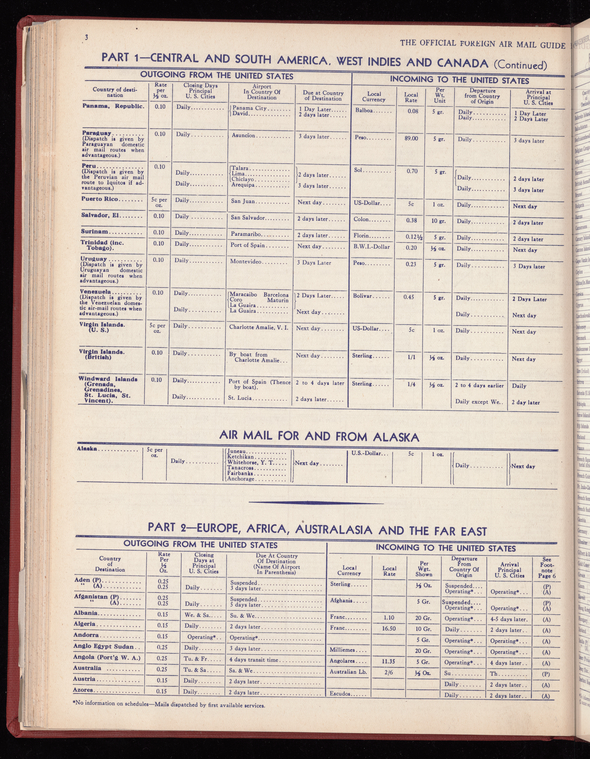 3
THE OFFICIAL FOREIGN AIR MAIL GUIDE
PART 1—CENTRAL AND SOUTH AMERICA, WEST INDIES AND CANADA (Continued)
OUTGOING FROM THE UNITED STATES INCOMING TO THE UNITED STATES
Country of desti-nation Rate per ½ oz. Closing Days Principal U. S. Cities Airport In Country Of Destination Due at Country of Destination Local Currency Local Rate Per Wt. Unit Departure from Country of Origin Arrival at Principal U. S. Cities
Panama, Republic. 0.10 Daily Panama City 1 Day Later Balboa 0.08 5 gr. Daily 1 Day Later
David 2 days later Daily 2 Days Later
Paraguay 0.10 Daily Asuncion 3 days later Peso 89.00 5 gr. Daily 3 days later
(Dispatch is given by
Paraguayan domestic
air mail routes when
advantageous.)
Peru 0.10 Talara Sol 0.70 5 gr.
(Dispatch is given by Daily Lima 2 days later Daily 2 days later
the Peruvian air mail Chiclayo
route to Iquitos if ad- Daily Arequipa 3 days later Daily 3 days later
vantageous.)
Puerto Rico 5c per oz. Daily San Juan Next day US-Dollar 5c 1 oz. Daily Next day
Salvador, El 0.10 Daily San Salvador 2 days later Colon 0.38 10 gr. Daily 2 days later
Surinam 0.10 Daily Paramaribo 2 days later Florin 0.12½ 5 gr. Daily 2 days later
Trinidad (inc. Tobago). 0.10 Daily Port of Spain Next day B.W.I.-Dollar 0.20 ½ oz. Daily Next day
Uruguay 0.10 Daily Montevideo 3 Days Later Peso 0.23 5 gr. Daily 3 Days Later
(Dispatch is given by
Uruguayan domestic
air mail routes when
advantageous.)
Venezuela 0.10 Daily Maracaibo Barcelona 2 Days Later Bolivar 0.45 5 gr. Daily 2 Days Later
(Dispatch is given by Coro Maturin
the Venezuelan domes- La Guaira
tic air-mail routes when Daily La Guaira Next day Daily Next day
advantageous.)
Virgin Islands. (U. S.) 5c per oz. Daily Charlotte Amalie, V. I. Next day US-Dollar 5c 1 oz. Daily Next day
Virgin Islands. (British) 0.10 Daily By boat from Charlotte Amalie Next day Sterling 1/1 ½ oz. Daily Next day
Windward Islands 0.10 Daily Port of Spain (Thence by boat). 2 to 4 days later Sterling 1/4 ½ oz. 2 to 4 days earlier Daily
(Grenada,
Grenadines,
St. Lucia, St. Vincent). Daily St. Lucia 2 days later Daily except We. 2 day later
AIR MAIL FOR AND FROM ALASKA
Alaska 5c per oz. Daily Juneau Next day U.S.-Dollar 5c 1 oz. Daily Next day
Ketchikan
Whitehorse, Y. T.
Tanacross
Fairbanks
Anchorage
PART 2—EUROPE, AFRICA, AUSTRALASIA AND THE FAR EAST
OUTGOING FROM THE UNITED STATES INCOMING TO THE UNITED STATES
Country of Destination Rate Per ½ Oz. Closing Days at Principal U. S. Cities Due At Country Of Destination (Name Of Airport In Parenthesis) Local Currency Local Rate Per Wgt. Shown Departure From Country Of Origin Arrival Principal U. S. Cities See Foot-note Page 6
Aden (P) 0.25 Suspended Sterling ½ Oz. Suspended (P)
" (A) 0.25 Daily 3 days later Operative* Operative* (A)
Afganistan (P) 0.25 Suspended Afghania 5 Gr. Suspended (P)
" (A) 0.25 Daily 5 days later Operative* Operative* (A)
Albania 0.15 We. & Sa. Su. & We. Franc 1.10 20 Gr. Operative* 4-5 days later. (A)
Algeria 0.15 Daily 2 days later Franc 16.50 10 Gr. Daily 2 days later (A)
Andorra 0.15 Operative* Operative* 5 Gr. Operative* Operative* (A)
Anglo Egypt Sudan 0.25 Daily 3 days later Milliemes 20 Gr. Operative* Operative* (A)
Angola (Port'g W. A.) 0.25 Tu. & Fr. 4 days transit time Angolares 11.35 5 Gr. Operative* 4 days later (A)
Australia 0.25 Tu. & Sa. Sa. & We. Australian Lb. 2/6 ½ Oz. Su Th (P)
Austria 0.15 Daily 2 days later Daily 2 days later (A)
Azores 0.15 Daily 2 days later Escudos Daily 2 days later (A)
*No information on schedules—Mails dispatched by first available services.